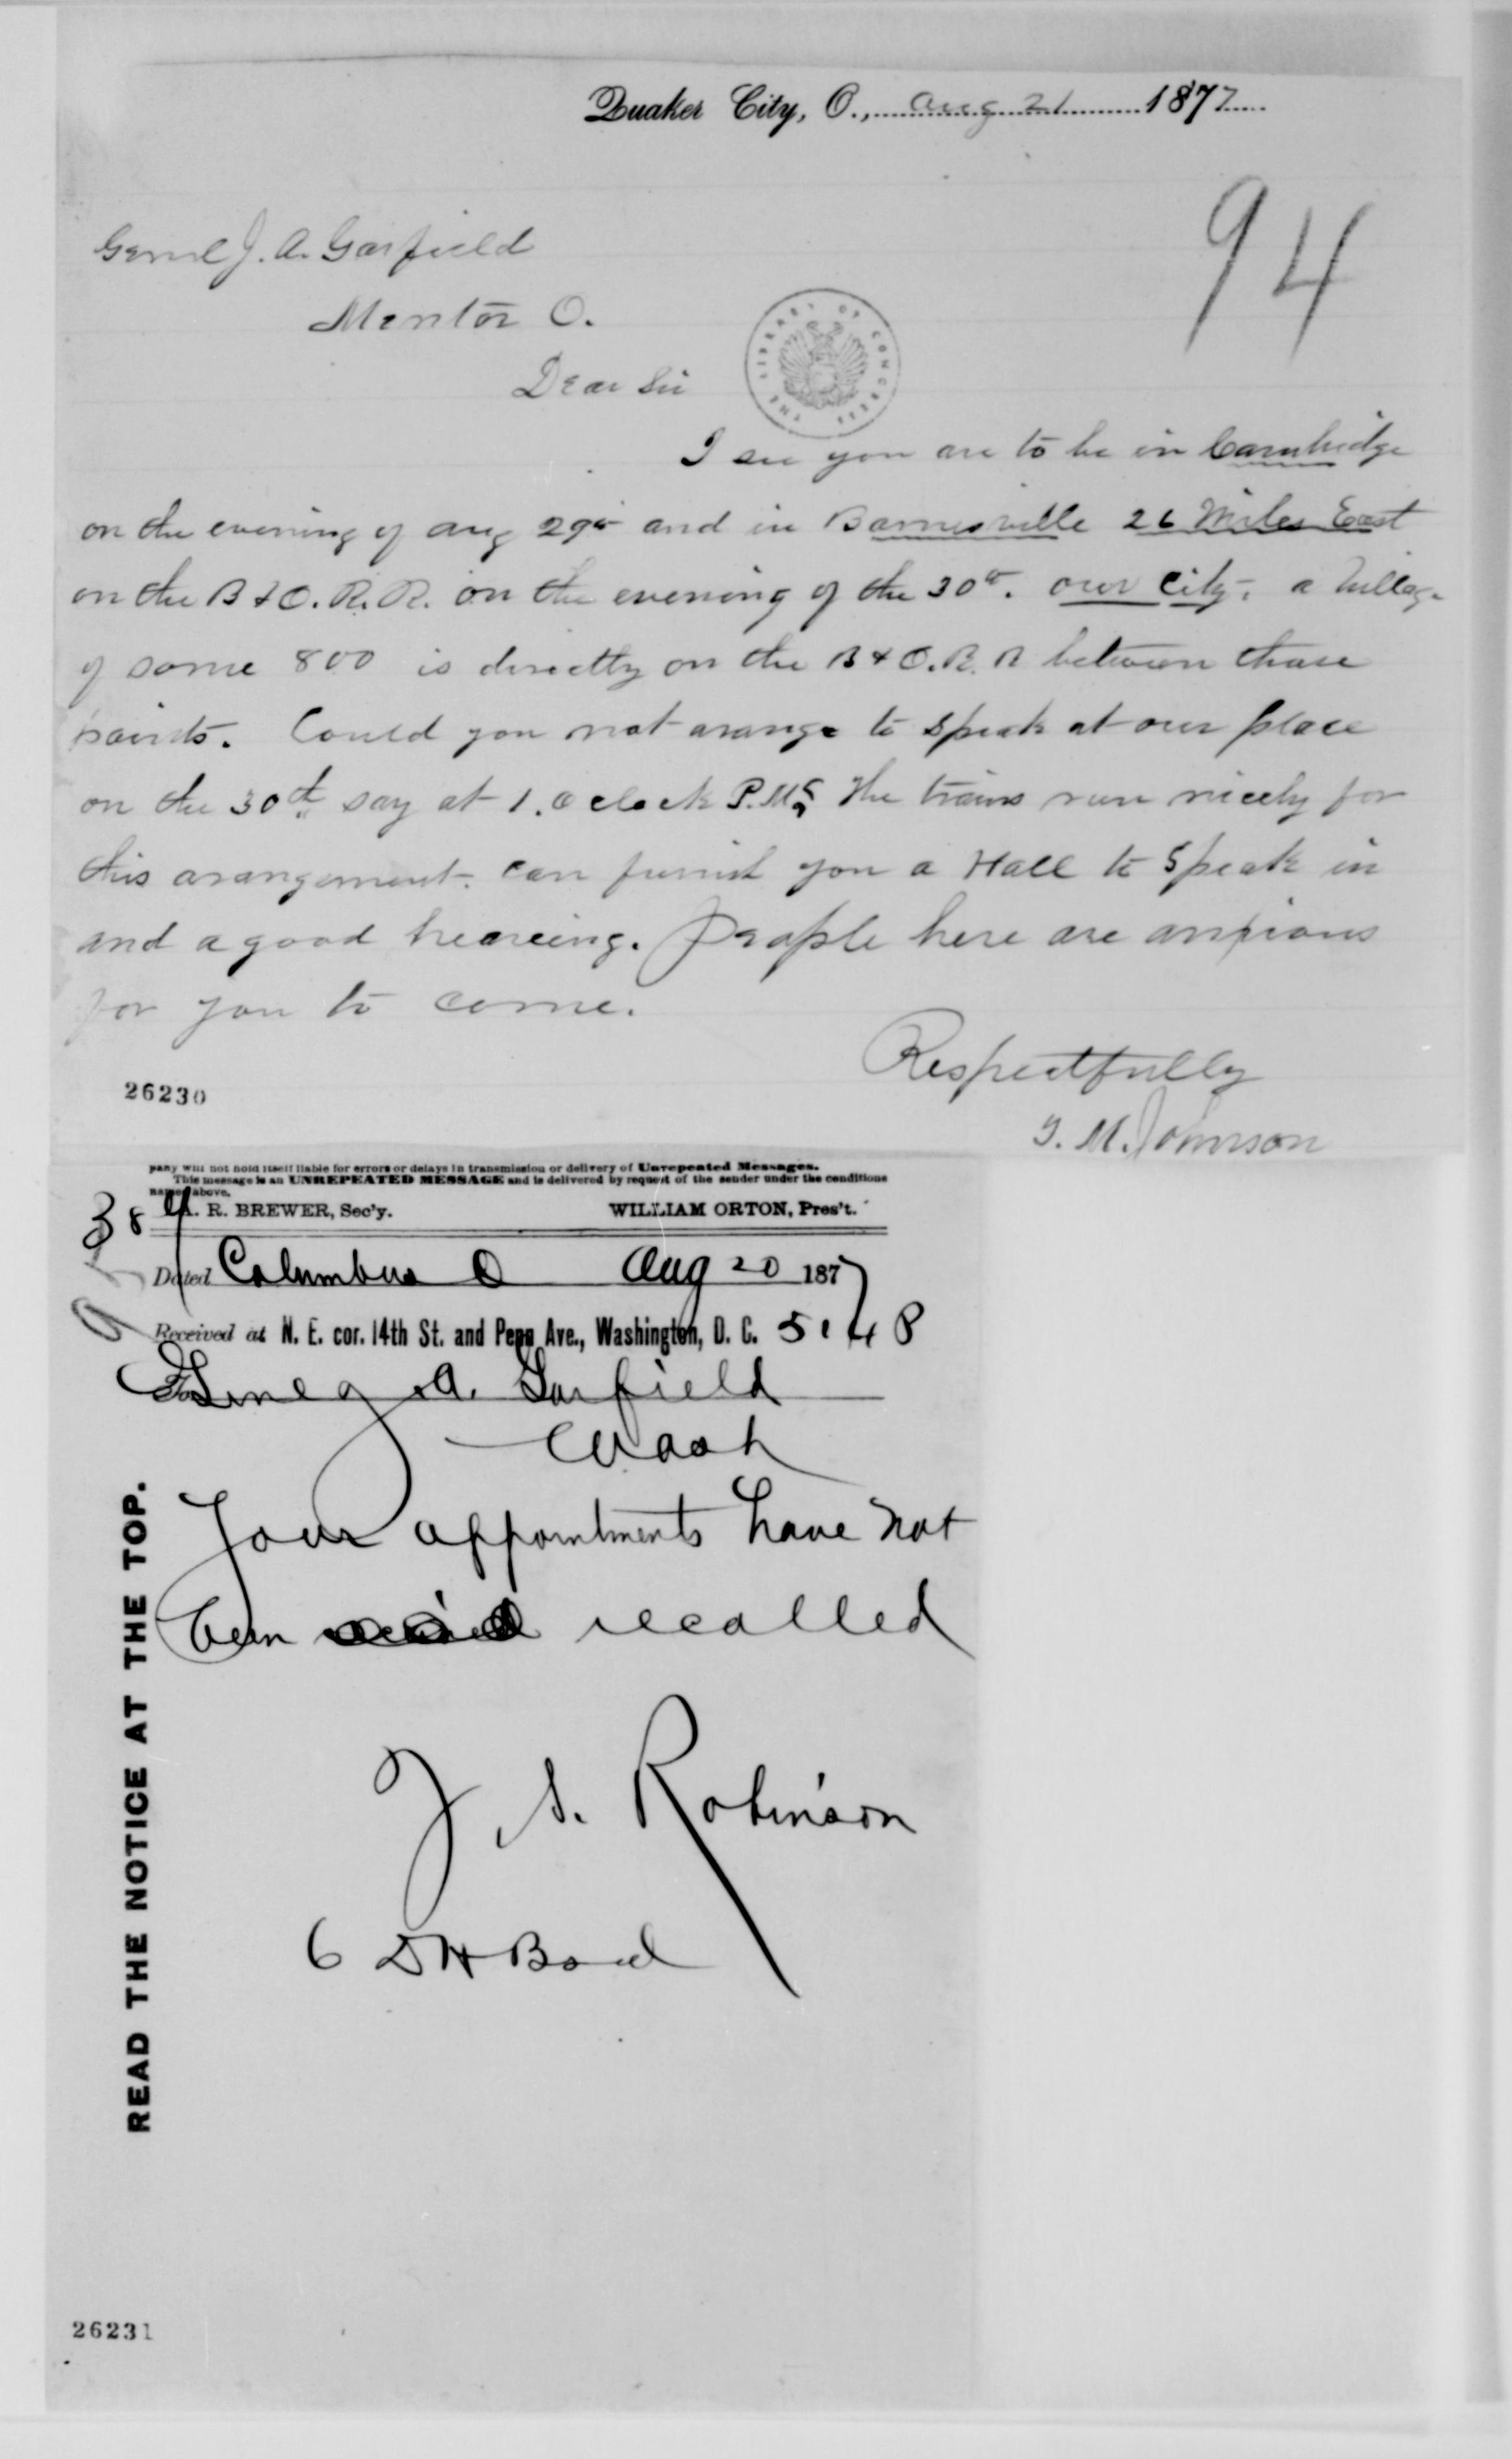 Quaker City, O., Aug 21 1877
94
Genrl J. A. Garfield
Mentor O.
Dear Sir
THE LIBRARY OF CONGRESS
I see you are to be in Cambridge
on the evening of Aug 29th and in Barnesville 26 Miles East
on the B & O. R. R. on the evening of the 30th. our City, a village
of some 800 is directly on the B & O. R. R between those
points. Could you not arange to speak at our place
on the 30th say at 1. Oclock P.M? The trains run nicely for
this arangement. can furnish you a Hall to Speak in
and a good heareing. People here are anxious
for you to come.
Respectfully
M. Johnson
26230
pany will not hold itself liable for errors or delays in transmission or delivery of Unrepeated Messages.
This message is an UNREPEATED MESSAGE and is delivered by request of the sender under the conditions
named above.
38
R. BREWER, Sec'y. WILLIAM ORTON, Pres't.
Dated Columbus O Aug 20 1877
Received at N. E. cor. 14th St. and Penn Ave., Washington, D. C. 5 48
To Genl J A. Garfield
Wash
Your appointments have not
been recalled
J. S. Robinson
6 DH
READ THE NOTICE AT THE TOP.
26231